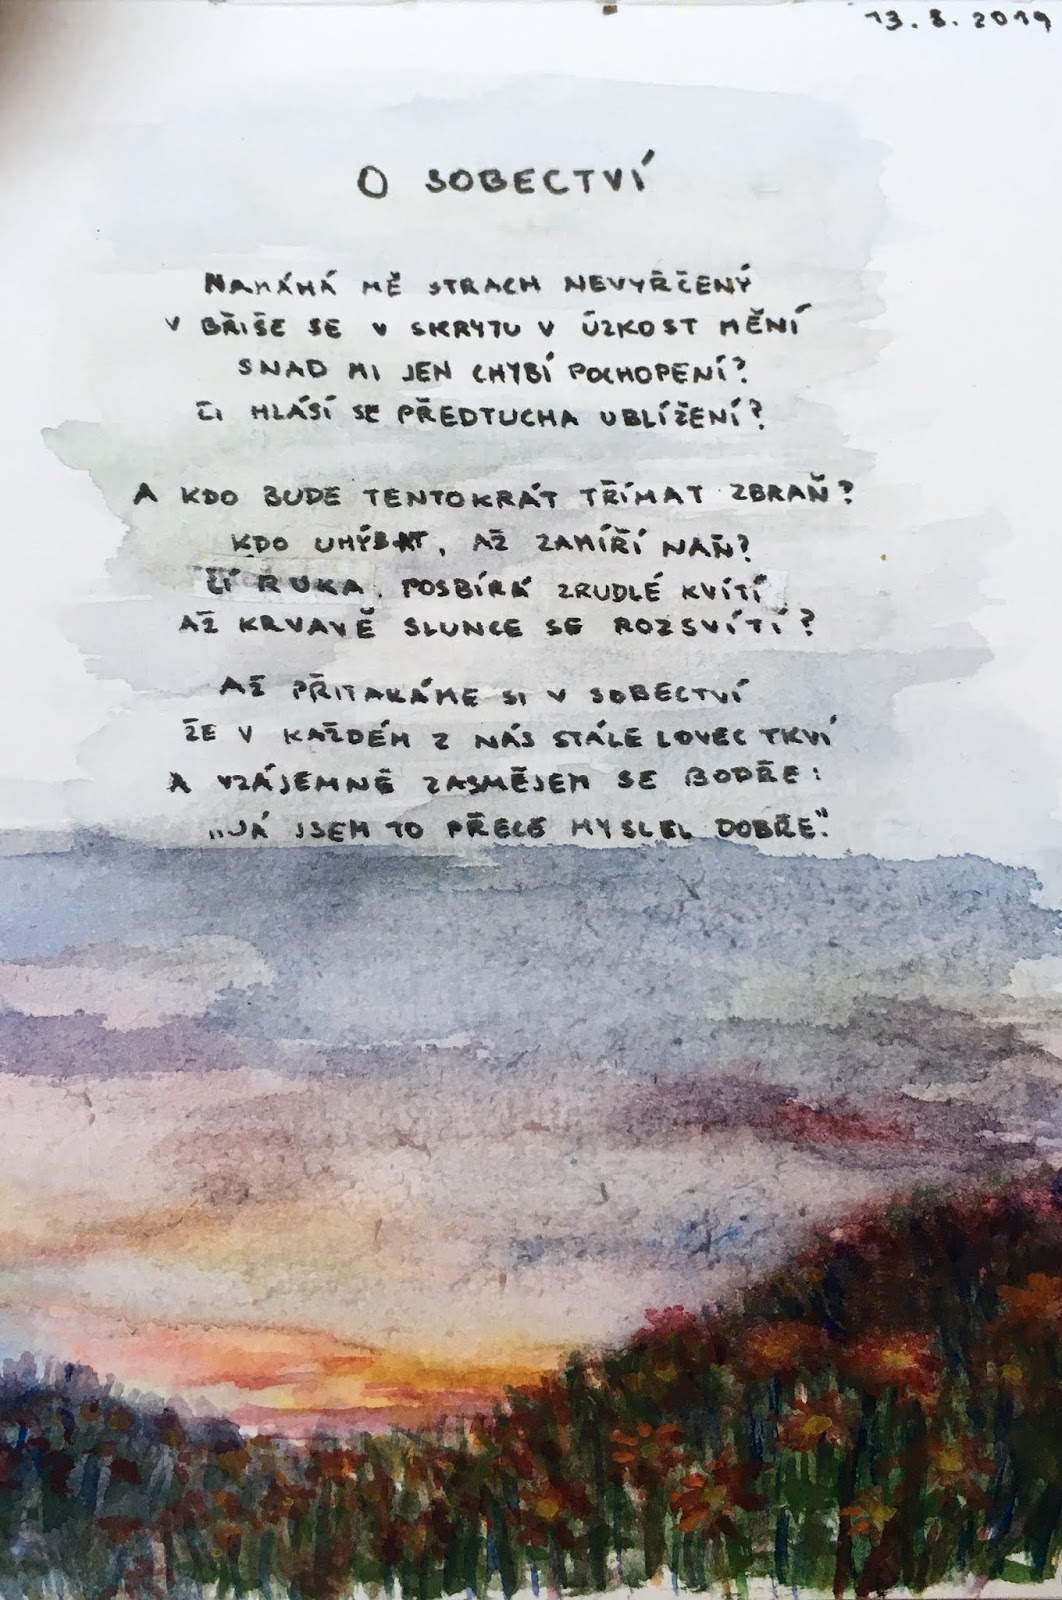 13.8.2019
O SOBECTVÍ
NAMÁHÁ MĚ STRACH NEVYŘČENÝ
V BŘIŠE SE V SKRYTU V ÚZKOST MĚNÍ
SNAD MI JEN CHYBÍ POCHOPENÍ?
ČI HLÁSÍ SE PŘEDTUCHA UBLÍŽENÍ?
A KDO BUDE TENTOKRÁT TŘÍMAT ZBRAŇ?
KDO UHÝBAT, AŽ ZAMÍŘÍ NAŇ?
ČÍ RUKA, POSBÍRÁ ZRUDLÉ KVÍTÍ
AŽ KRVAVĚ SLUNCE SE ROZSVÍTÍ?
AŽ PŘITAKÁME SI V SOBECTVÍ
ŽE V KAŽDÉM Z NÁS STÁLE LOVEC TKVÍ
A VZÁJEMNĚ ZASMĚJEM SE BODŘE:
„JÁ JSEM TO PŘECE MYSLEL DOBŘE."